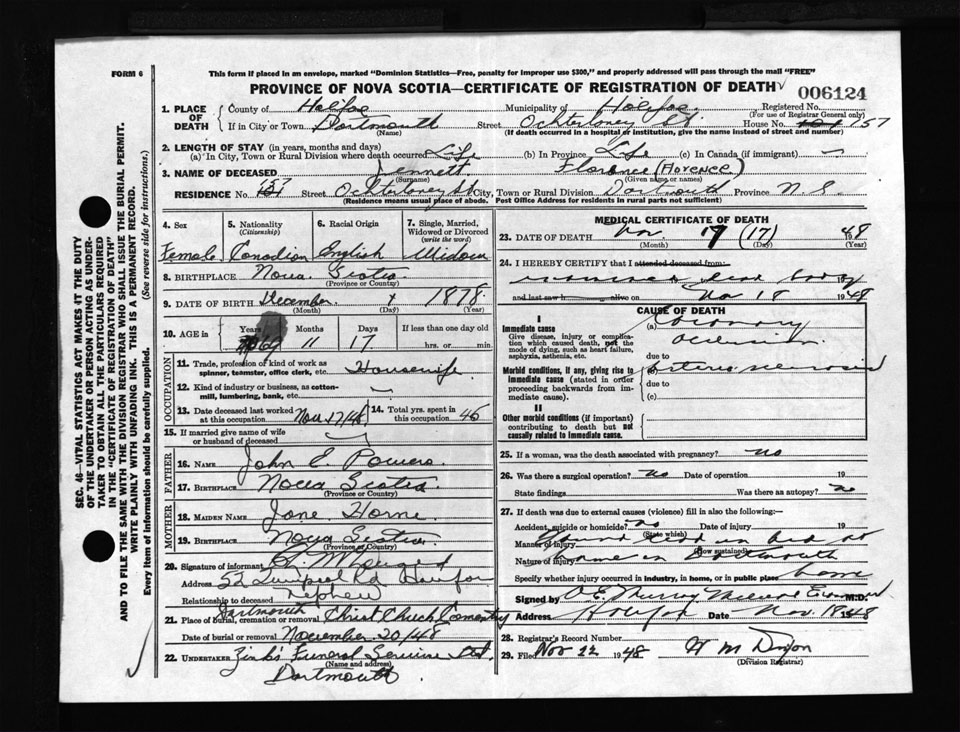 FORM 6
This form if placed in an envelope, marked "Dominion Statistics—Free, penalty for improper use $300," and properly addressed will pass through the mail "FREE"
PROVINCE OF NOVA SCOTIA—CERTIFICATE OF REGISTRATION OF DEATH
006124
1. PLACE OF DEATH
County of Halifax Municipality of Halifax Registered No.
(For use of Registrar General only)
If in City or Town Dartmouth Street Ochterloney St. House No. 157
(Name) (If death occurred in a hospital or institution, give the name instead of street and number)
2. LENGTH OF STAY (in years, months and days)
(a) In City, Town or Rural Division where death occurred Life (b) In Province Life (c) In Canada (if immigrant) —
3. NAME OF DECEASED Jennett Florence (Florence)
(Surname) (Given name or names)
RESIDENCE No. 157 Street Ochterloney St City, Town or Rural Division Dartmouth Province N.S.
(Residence means usual place of abode. Post Office Address for residents in rural parts not sufficient)
4. Sex
Female
5. Nationality
(Citizenship)
Canadian
6. Racial Origin
English
7. Single, Married, Widowed or Divorced
(write the word)
Widow
8. BIRTHPLACE Nova Scotia
(Province or Country)
9. DATE OF BIRTH December 1878
(Month) (Day) (Year)
10. AGE in
Years Months Days If less than one day old
69 11 17 hrs. or min.
OCCUPATION
11. Trade, profession or kind of work as spinner, teamster, office clerk, etc. Housewife
12. Kind of industry or business, as cotton-mill, lumbering, bank, etc. —
13. Date deceased last worked at this occupation Nov 17/48
14. Total yrs. spent in this occupation 45
15. If married give name of wife or husband of deceased
FATHER
16. NAME John E. Powers
17. BIRTHPLACE Nova Scotia
(Province or Country)
MOTHER
18. MAIDEN NAME Jane Horne
19. BIRTHPLACE Nova Scotia
(Province or Country)
20. Signature of informant
Address 52 Liverpool Rd Halifax
Relationship to deceased Nephew
21. Place of burial, cremation or removal Dartmouth Christ Church Cemetery
Date of burial or removal November 20/48
22. UNDERTAKER Zink's Funeral Service Ltd.
(Name and address)
Dartmouth
MEDICAL CERTIFICATE OF DEATH
23. DATE OF DEATH Nov. 17 (17) 1948
(Month) (Day) (Year)
24. I HEREBY CERTIFY that I attended deceased from:
examined dead body
and last saw h alive on Nov 18 1948
CAUSE OF DEATH
I
Immediate cause
Give disease, injury or complication which caused death, not the mode of dying, such as heart failure, asphyxia, asthenia, etc.
(a) Coronary occlusion
due to
Morbid conditions, if any, giving rise to immediate cause (stated in order proceeding backwards from immediate cause).
(b) Arteriosclerosis
due to
(c)
II
Other morbid conditions (if important) contributing to death but not causally related to immediate cause.
25. If a woman, was the death associated with pregnancy? no
26. Was there a surgical operation? no Date of operation 19
State findings Was there an autopsy? no
27. If death was due to external causes (violence) fill in also the following:
Accident, suicide or homicide? no Date of injury 19
(State which)
Manner of injury Found dead in bed at
(How sustained)
Nature of injury home in Dartmouth
Specify whether injury occurred in industry, in home, or in public place home
Signed by Murray Medical Examiner M.D.
Address Halifax Date Nov. 18 1948
28. Registrar's Record Number
29. Filed Nov 22 1948
(Division Registrar)
SEC. 46—VITAL STATISTICS ACT MAKES IT THE DUTY
OF THE UNDERTAKER OR PERSON ACTING AS UNDERTAKER TO OBTAIN ALL THE PARTICULARS REQUIRED
IN THE "CERTIFICATE OF REGISTRATION OF DEATH"
AND TO FILE THE SAME WITH THE DIVISION REGISTRAR WHO SHALL ISSUE THE BURIAL PERMIT.
WRITE PLAINLY WITH UNFADING INK. THIS IS A PERMANENT RECORD.
Every item of information should be carefully supplied. (See reverse side for instructions.)